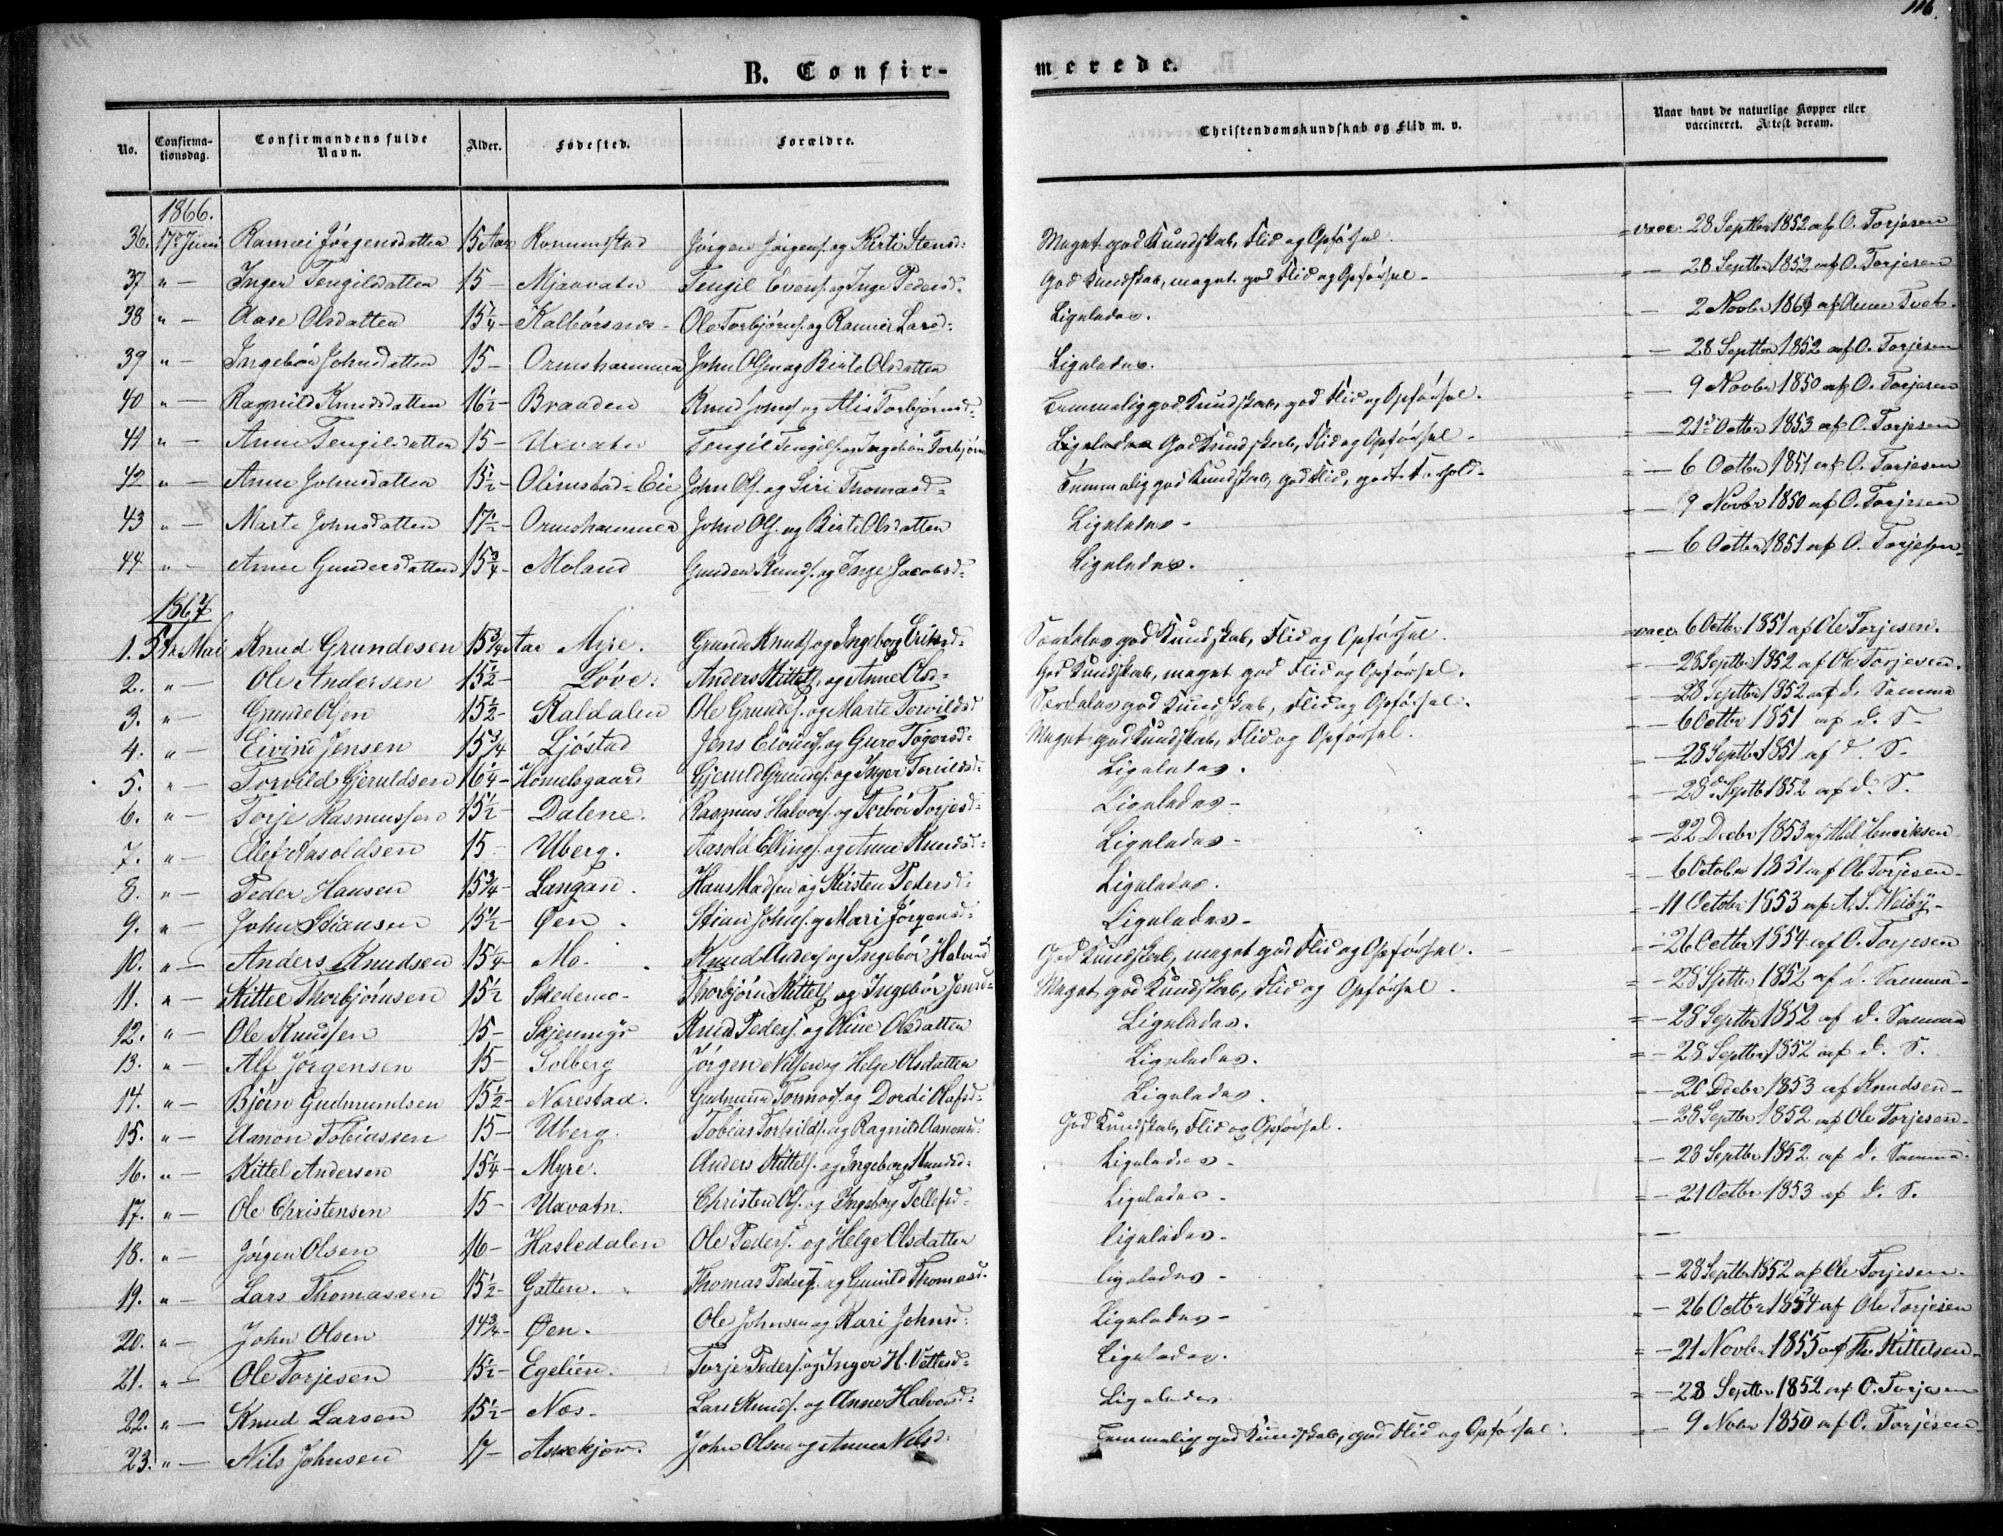 116.
B. Confirmerede.
No. Confirmationsdag. Confirmandens fulde Navn. Alder. Fødested. Forældre. Christendomskundskab og Flid m. v. Naar havt de naturlige Kopper eller vaccineret. Attest derom.
1866.
36. 17de Juni Jörgensdatter 15 Aar Jörgen Jörgens. og Kirti Stensd: Meget god Kundskab, Flid og Opførsel. vacc. 28 Septbr 1852 af O. Torjesen
37 " — Inger Tengilsdatter 15 — Mjaavatn Tengil Evens. og Inge Pedersd. God Kundskab, meget god Flid og Opførsel — " — 28 Septbr 1852 af O. Torjesen
38 " — Aase Olsdatter 15 1/4 — Kalbörsnes — Ole Torbjörns. og Larsd: Ligeledes. — 2 Novbr 1861 af Anne Tvet.
39 " — Ingebör Johnsdatter 15 — Ormshammer John Olsen og Birte Olsdatter Ligeledes. — 28 Septbr 1852 af O. Torjesen
40 " — Ragnild Knudsdatter 16 1/2 — Braaden Knud og Alis Torbjörnsd. Temmelig god Kundskab, god Flid og Opførsel. — 9 Novbr 1850 af O. Torjesen
41 " — Anne Tengilsdatter 15 — Uxvatn Tengil Tengils. og Ingebör Torbjörns Ligeledes God Kundskab, Flid og Opførsel — — 21de Octbr 1853 af O. Torjesen
42 " — Anne Johnsdatter 15 1/2 — Olimstad-Eie John Ols. og Siri Thomasd: Temmelig god Kundskab, god Flid, godt Forhold. — 6 Octbr 1851 af O. Torjesen
43 " — Marte Johnsdatter 17 1/2 — Ormshammer John Ols. og Birte Olsdatter Ligeledes — — 9 Novbr 1850 af O. Torjesen
44 " — Anne Gundersdatter 15 3/4 — Moland Gunder Knuds. og Inge Jacobsd: Ligeledes. — 6 Octbr 1851 af O. Torjesen
1867
1. 5te Mai Knud Grundesen 15 3/4 Aar Myre. Grunde Knuds. og Ingeborg Eriksd: Særdeles god Kundskab, Flid og Opførsel. vacc. 6 Octbr 1851 af Ole Torjesen.
2. " — Ole Andersen 15 1/2 — Löve. Anders Kittels. og Anne Olsd: God Kundskab, meget god Flid og Opførsel. — 28 Septbr 1852 af Ole Torjesen.
3. " Grunde Olsen 15 1/2 — Kaldalen Ole Grundes. og Marte Torvildsd Særdeles god Kundskab, Flid og Opførsel. — 28 Septbr 1852 af d. Samme
4. " Eivind Jensen 15 3/4 Ljöstad Jens Eivinds. og Guro Tögersd: Meget god Kundskab, Flid og Opførsel. — 6 Octbr 1851 af d. S.
5. " Torvild Gjeruldsen 16 1/4 — Homelsgaard Gjeruld Grundes. og Inger Torvildsd. Ligeledes. — 28 Septbr 1851 af d. S.
6. " — Torje Rasmussen 15 1/2 — Dalene. Rasmus Halvors. og Torbör Torjesd: Ligeledes — — 28de Septb 1852 af d. S.
7. " — Elef Aasoldsen 15 Uberg. Aasold Ellings. og Anne Knudsd: Ligeledes — — 22 Decbr 1853 af Abel Henriksen
8. " — Peder Hansen 15 3/4 — Langan. Hans Madsen og Kirsten Pedersd: Ligeledes. — 6 October 1851 af Ole Torjesen —
9. " — John Stiansen 15 1/2 — Øen. Stian Johns. og Mari Jörgensd: Ligeledes — — 11 Octobr 1853 af A. S. Weiby —
10. " — Anders Knudsen 15 1/4 — Mo. Knud Anders. og Ingebör Halvorsd God Kundskab, meget god Flid og Opførsel. — 26 Octbr 1854 af O. Torjesen
11. " — Kittel Thorbjörnsen 15 1/2 Skedemo — Thorbjörn Kittels. og Ingebör Jensd: Meget god Kundskab, Flid og Opførsel. — 28 Septbr 1852 af d. Samme —
12. " — Ole Knudsen 15 — Knud Peders. og Oline Olsdatter Ligeledes. — 28 Septbr 1852 af d. Samme
13. " — Alf Jörgensen 15 — Solberg Jörgen Nilsen og Helge Olsdatter Ligeledes. — 28 Septbr 1852 af d. S.
14. " — Björn Gudmundsen 15 1/2 — Norestad. Gudmund Tormods. og Dordi Olafsd: Ligeledes. — 20 Decbr 1853 af Knudsen —
15. " — Aanon Tobiassen 15 — Uberg. Tobias Torkilds. og Ragnild Aanonsd: God Kundskab, Flid og Opførsel. — 28 Septbr 1852 af Ole Torjesen —
16. " — Kittel Andersen 15 1/4 — Myre. Anders Kittels. og Ingeborg Knudsd — Ligeledes — — 28 Septbr 1852 af d. Samme.
17. " — Ole Christensen 15 — Uxvatn. Christen Ols. og Ingeborg Tellefsd — Ligeledes — — 21 Octbr 1853 af d. S.
18. " — Jörgen Olsen 16 — Hasledalen Ole Peders. og Helge Olsdatter Ligeledes — —
19. " — Lars Thomassen 15 1/2 — Gatten. Thomas Peders. og Gunild Thomasd. Ligeledes — — 28 Septbr 1852 af Ole Torjesen.
20. " — John Olsen 14 3/4 — Øen. Ole Johnsen og Kari Johnsd: Ligeledes — — 26 Octbr 1854 af Ole Torjesen
21. " — Ole Torjesen 15 1/2 — Egelien. Torje Peders. og Inger H. Vettesd — Ligeledes. — 21 Novbr 1855 af Th. Kittelsen —
22. " — Knud Larsen 15 1/2 — Næs. Lars Knuds. og Anne Halvorsd: Ligeledes — 28 Septbr 1852 af O. Torjesen
23. " — Nils Johnsen 17 — Askekjær. John Olsen og Anne Nilsd: Temmelig god Kundskab, god Flid og Opførsel: — 9 Nobr 1850 af O. Torjesen —